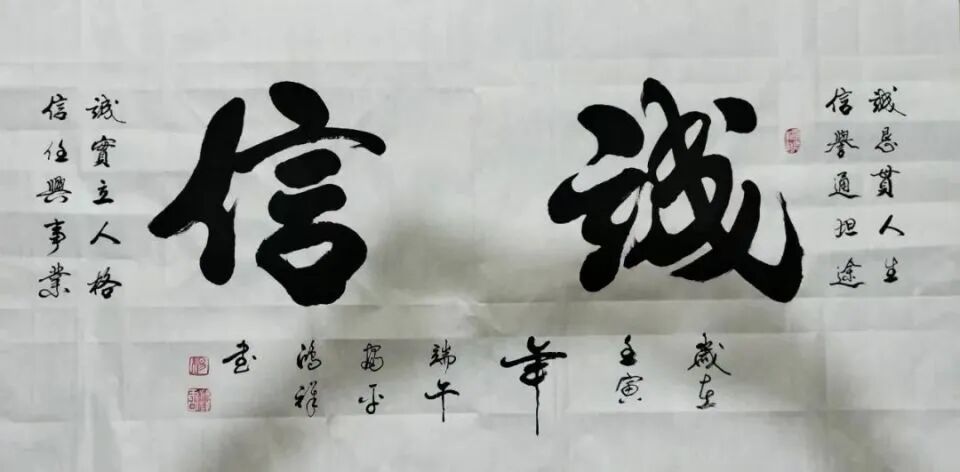 誠信
誠恳貫人生
信譽通坦途
誠實立人格
信任興事業
歲在
壬寅
年
端午
楊平
鴻祥
书